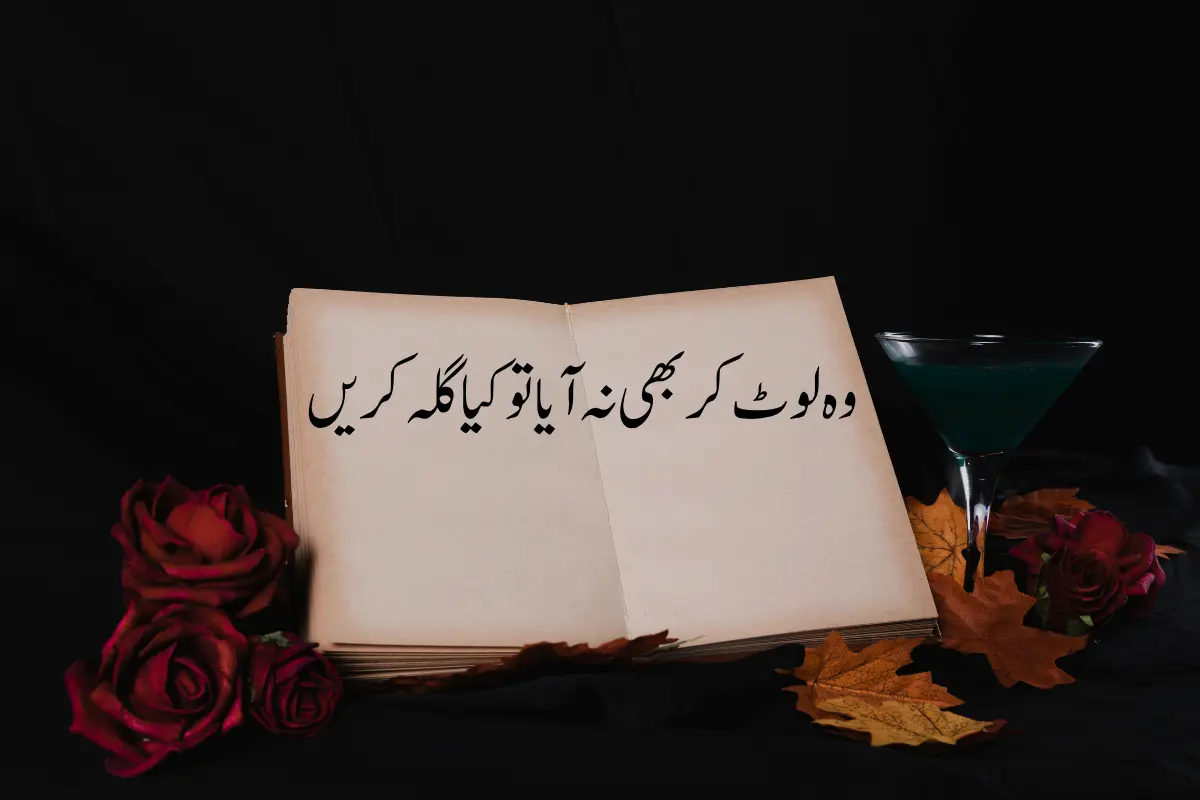 وہ لوٹ کر بھی نہ آیا تو کیا گلہ کریں